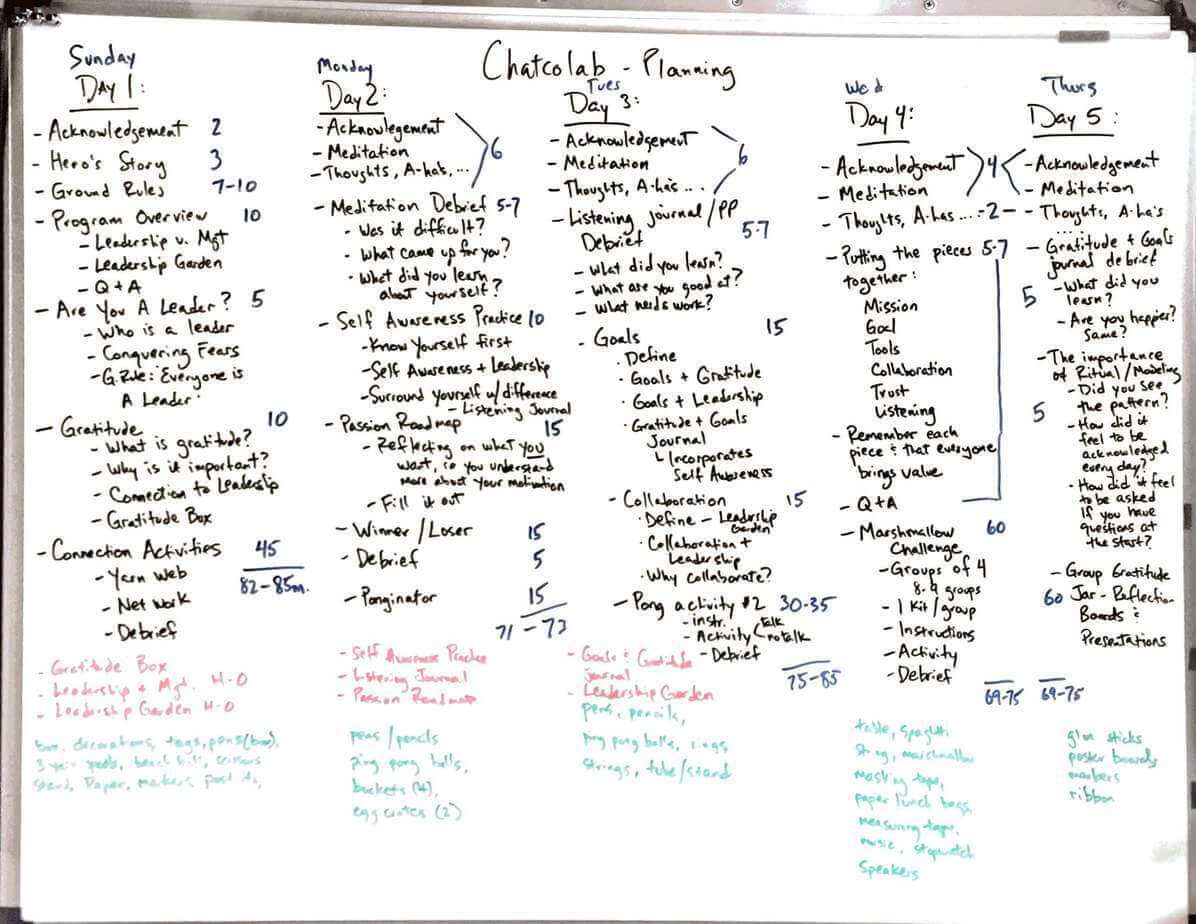 Chatcolab - Planning
Sunday
Day 1:
- Acknowledgement 2
- Hero's Story 3
- Ground Rules 7-10
- Program Overview 10
- Leadership v. Mgt
- Leadership Garden
- Q + A
- Are You A Leader? 5
- Who is a leader
- Conquering Fears
- G. Rule: Everyone is
A Leader.
- Gratitude 10
- What is gratitude?
- Why is it important?
- Connection to Leadership
- Gratitude Box
- Connection Activities 45
- Yarn Web
- Net work
- Debrief
82-85m.
- Gratitude Box
- Leadership + Mgt. H-O
- Leadership Garden H-O
box, decorations, tags, pens (box),
3 yarn, beach ball, scissors
Paper, markers, post its,
Monday
Day 2:
- Acknowlegement
- Meditation
- Thoughts, A-ha's, ...
6
- Meditation Debrief 5-7
- Was it difficult?
- What came up for you?
- What did you learn
about yourself?
- Self Awareness Practice 10
- Know Yourself first
- Self Awareness + Leadership
- Surround Yourself w/ difference
- Listening Journal
- Passion Roadmap 15
- Reflecting on what you
want, so you understand
more about your motivation
- Fill it out
- Winner / Loser 15
- Debrief 5
- Ponginator 15
71-73
- Self Awareness Practice
- Listening Journal
- Passion Roadmap
pens / pencils
ping pong balls,
buckets (4),
egg crates (2)
Tues
Day 3:
- Acknowledgement
- Meditation
- Thoughts, A-ha's ...
6
- Listening journal / PP
Debrief 5-7
- What did you learn?
- What are you good at?
- What needs work?
- Goals 15
· Define
· Goals + Gratitude
· Goals + Leadership
· Gratitude + Goals
Journal
↳ Incorporates
Self Awareness
- Collaboration 15
· Define - Leadership
Garden
· Collaboration +
Leadership
· Why Collaborate?
- Pong activity #2 30-35
- instr.
- Activity < talk
no talk
- Debrief
75-85
- Goals & Gratitude
journal
- Leadership Garden
pens, pencils,
ping pong balls, rings,
strings, tube/stand
Wed
Day 4:
- Acknowledgement
- Meditation
4
- Thoughts, A-has ... - 2 -
- Putting the pieces 5-7
together:
Mission
Goal
Tools
Collaboration
Trust
Listening
- Remember each
piece & that everyone
brings value
- Q + A
- Marshmallow 60
Challenge
- Groups of 4
8-9 groups
- 1 Kit / group
- Instructions
- Activity
- Debrief
69-75
table, spaghetti
string, marshmallow
masking tape,
paper lunch bags,
measuring tape,
music, stopwatch
speakers
Thurs
Day 5:
- Acknowledgement
- Meditation
- Thoughts, A-ha's
....
- Gratitude + Goals
journal debrief
5
- What did you
learn?
- Are you happier?
Same?
- The importance
of Ritual / Modeling
5
- Did you see
the pattern?
- How did it
feel to be
acknowledged
every day?
- How did it feel
to be asked
If you have
questions at
the start?
- Group Gratitude
60 Jar - Reflection
Boards &
Presentations
69-75
glue sticks
poster boards
markers
ribbon